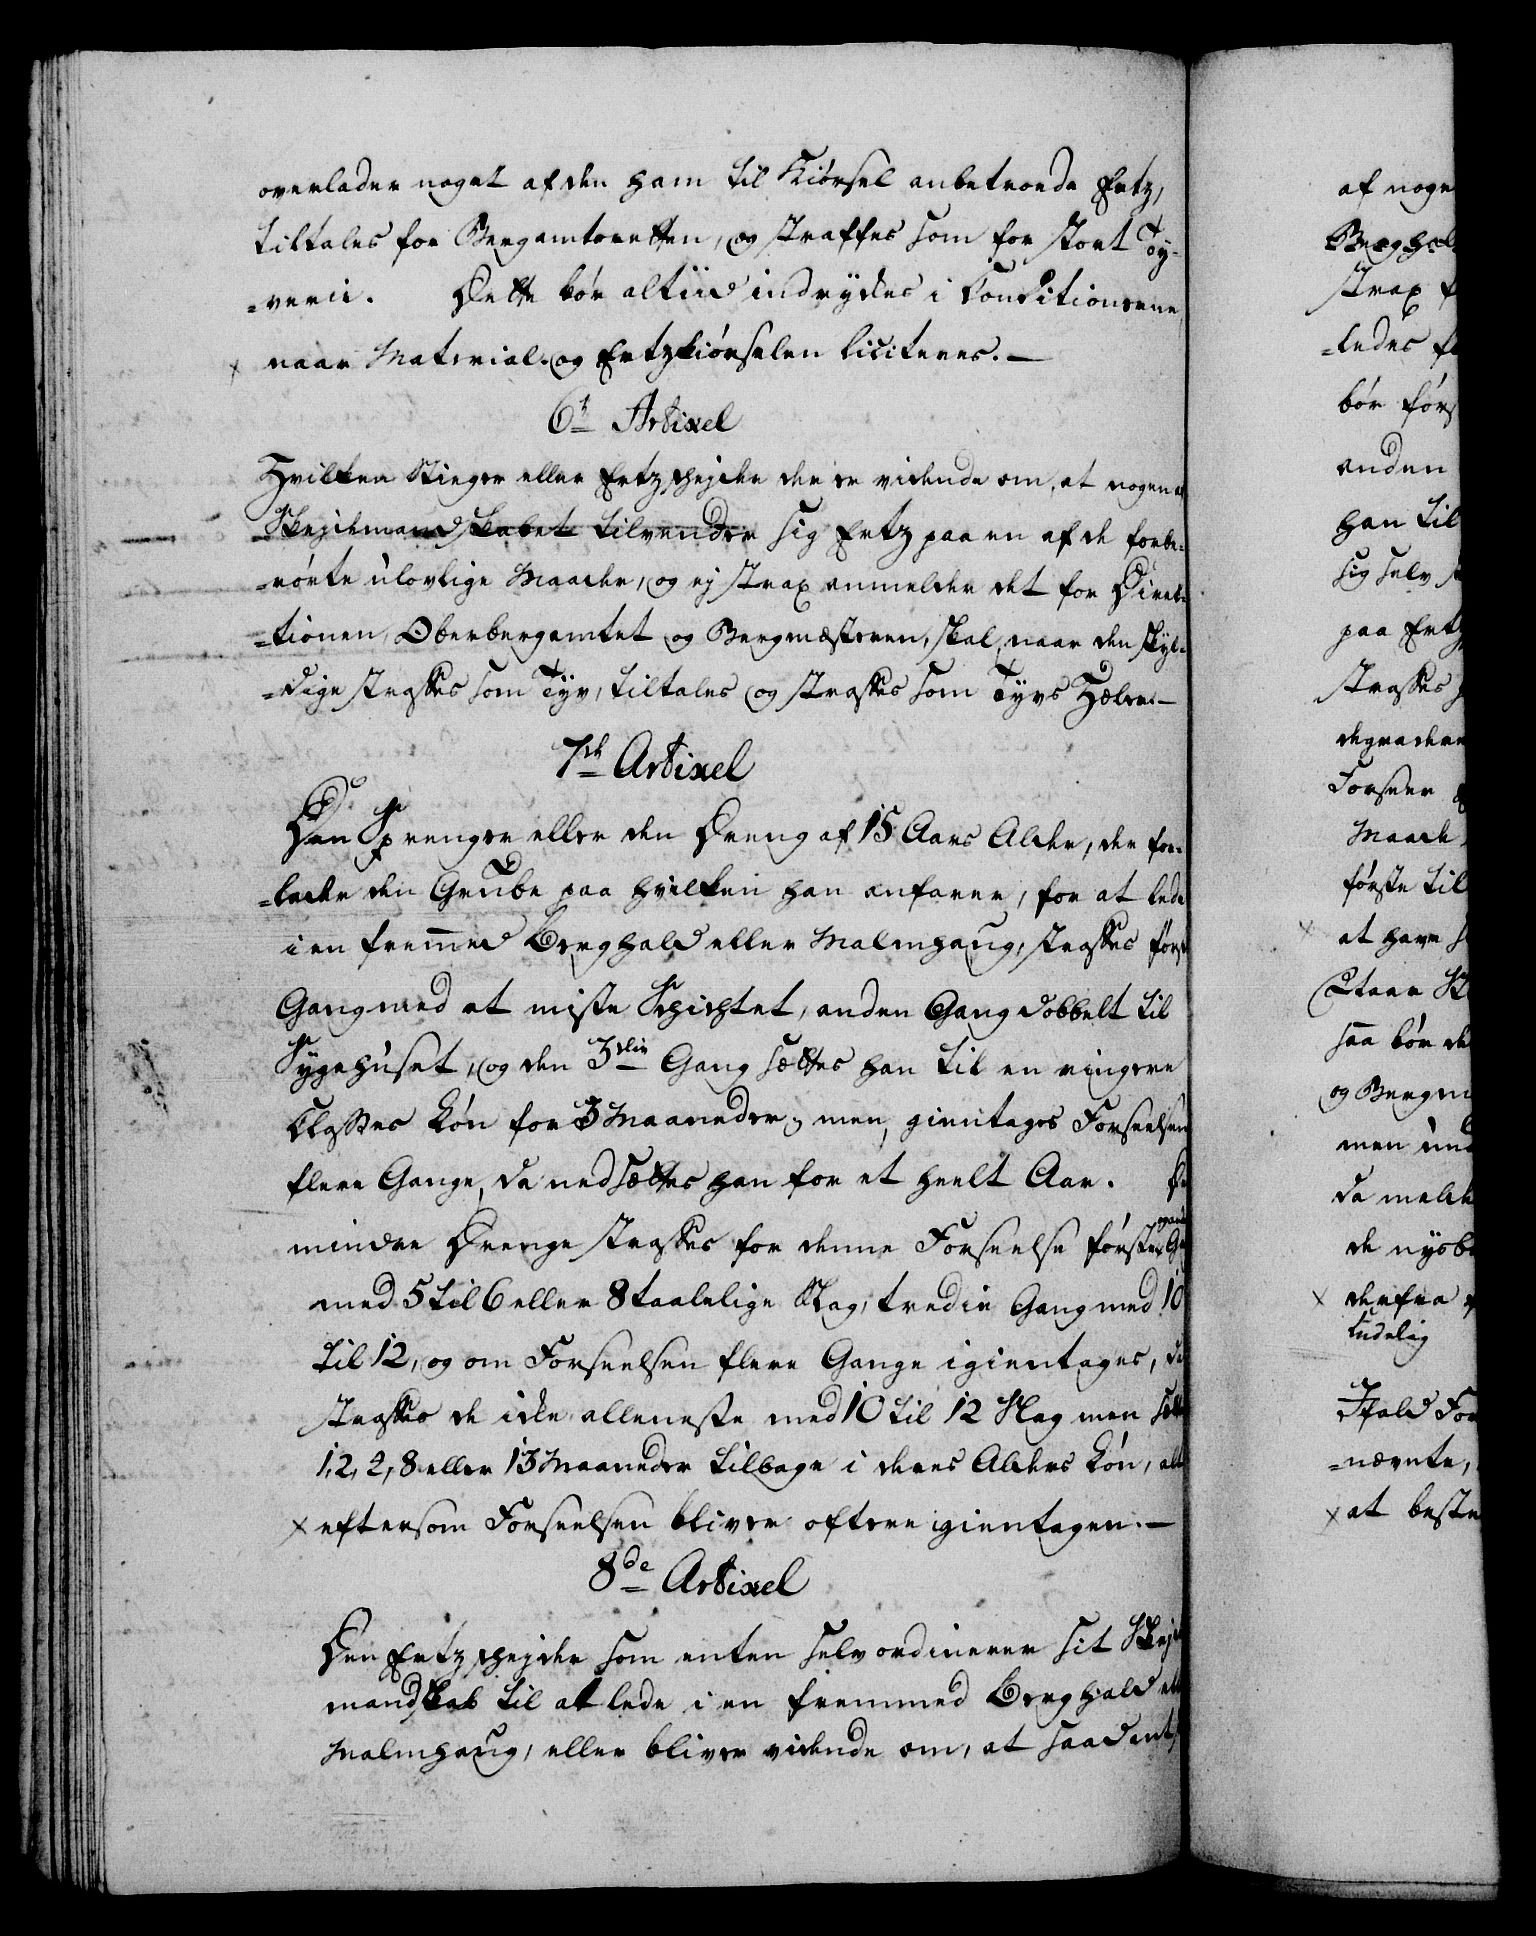 overlader noget af den ham til Kiörsel anbetroede Ertz,
tiltales for Bergamtsretten, og straffes som for stort Ty-
=verie. Dette bör altiid indrykkes i Conditionerne,
naar Material- og Ertzkiörselen liciteres. —
6t Artikel
Hvilken Stieger eller Ertzscheider der er vidende om, at nogen af
Skeidemandskabet tilvender sig Ertz paa en af de forbe-
=rörte ulovlige Maader, og ej strax anmelder det for Direc-
=tionen, Oberbergamtet og Bergmesteren, skal, naar den skyl-
=dige straffes som Tyv, tiltales og straffes som Tyvs Hæler. —
7de Artikel
Den Sprenger eller den Dreng af 15 Aars Alder, der for-
=lader den Grube paa hvilken han anfarer, for at lede
i en fremmed Berghald eller Malmhaug, straffes förste
Gang med at miste Schichtet, anden Gang dobbelt til
Sygehuset, og den 3die Gang sættes han til en ringere
Classes Lön for 3 Maaneder; men, gientages Forseelsen
flere Gange, da nedsættes han for et heelt Aar. De
mindre Drenge straffes for denne Forseelse förste Gang
med 5 til 6 eller 8 taalelige Slag, tredie Gang med 10
til 12, og om Forseelsen flere Gange igientages, da
straffes de ikke alleneste med 10 til 12 Slag men sættes
1, 2, 2, 8 eller 13 Maaneder tilbage i deres Alders Lön, alt
eftersom Forseelsen bliver oftere igientagen. —
8de Artikel
Den Ertzscheider som enten selv ordinerer sit Skejde
mandskab til at lede i en fremmed Berghald eller
Malmhaug, eller bliver vidende om, at saadant
af noge
Berghal
strax f
=ledes
bör förs
anden
han til
sig selv
paa Ertz
straffes
degradere
Forseer
Maade
förste til
at have
Staar
saa bör de
og Bergm
men und
da meld
de nysbe
derfra
Endelig
Ifald For
=nævnte,
at beste